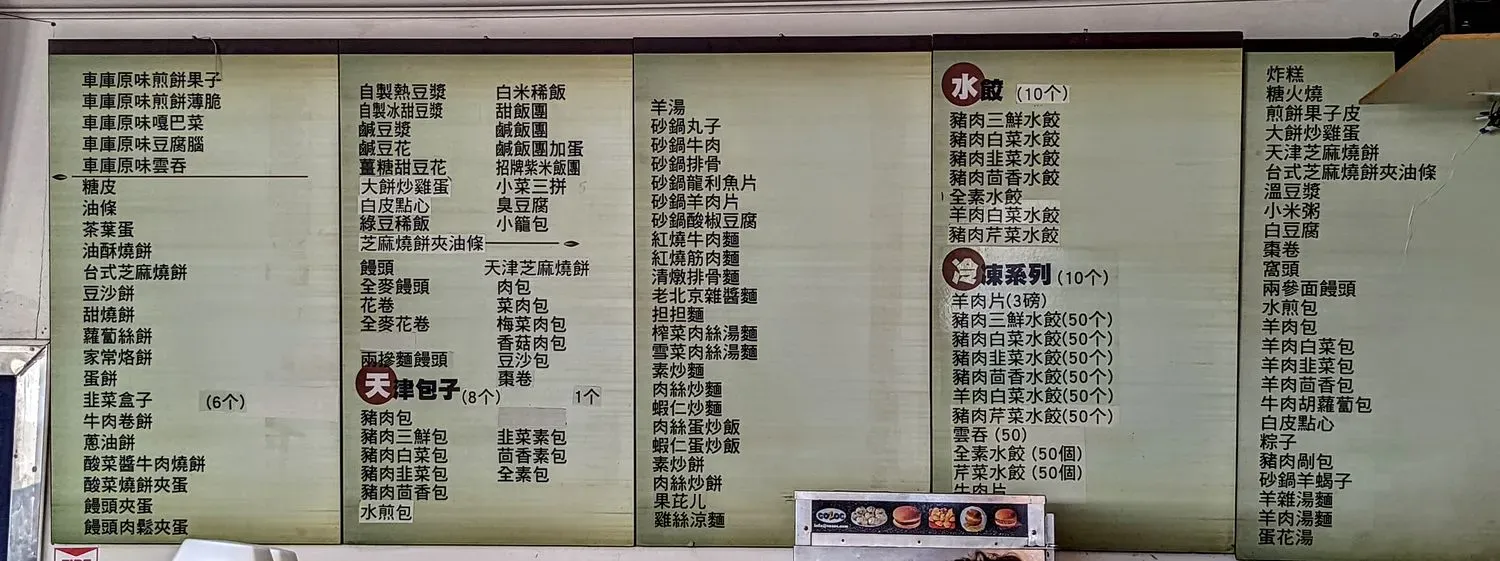 車庫原味煎餅果子
車庫原味煎餅薄脆
車庫原味嘎巴菜
車庫原味豆腐腦
車庫原味雲吞
糖皮
油條
茶葉蛋
油酥燒餅
台式芝麻燒餅
豆沙餅
甜燒餅
蘿蔔絲餅
家常烙餅
蛋餅
韭菜盒子 (6个)
牛肉卷餅
蔥油餅
酸菜醬牛肉燒餅
酸菜燒餅夾蛋
饅頭夾蛋
饅頭肉鬆夾蛋
自製熱豆漿
自製冰甜豆漿
鹹豆漿
鹹豆花
薑糖甜豆花
大餅炒雞蛋
白皮點心
綠豆稀飯
芝麻燒餅夾油條
白米稀飯
甜飯團
鹹飯團
鹹飯團加蛋
招牌紫米飯團
小菜三拼
臭豆腐
小籠包
饅頭
全麥饅頭
花卷
全麥花卷
兩摻麵饅頭
天津芝麻燒餅
肉包
菜肉包
梅菜肉包
香菇肉包
豆沙包
棗卷
天津包子(8个) 1个
豬肉包
豬肉三鮮包
豬肉白菜包
豬肉韭菜包
豬肉茴香包
水煎包
韭菜素包
茴香素包
全素包
羊湯
砂鍋丸子
砂鍋牛肉
砂鍋排骨
砂鍋龍利魚片
砂鍋羊肉片
砂鍋酸椒豆腐
紅燒牛肉麵
紅燒筋肉麵
清燉排骨麵
老北京雜醬麵
担担麵
榨菜肉絲湯麵
雪菜肉絲湯麵
素炒麵
肉絲炒麵
蝦仁炒麵
肉絲蛋炒飯
蝦仁蛋炒飯
素炒餅
肉絲炒餅
果芘儿
雞絲涼麵
水餃 (10个)
豬肉三鮮水餃
豬肉白菜水餃
豬肉韭菜水餃
豬肉茴香水餃
全素水餃
羊肉白菜水餃
豬肉芹菜水餃
冷凍系列 (10个)
羊肉片(3磅)
豬肉三鮮水餃(50个)
豬肉白菜水餃(50个)
豬肉韭菜水餃(50个)
豬肉茴香水餃(50个)
羊肉白菜水餃(50个)
豬肉芹菜水餃(50个)
雲吞 (50)
全素水餃 (50個)
芹菜水餃 (50個)
牛肉片
炸糕
糖火燒
煎餅果子皮
大餅炒雞蛋
天津芝麻燒餅
台式芝麻燒餅夾油條
溫豆漿
小米粥
白豆腐
棗卷
窩頭
兩參面饅頭
水煎包
羊肉包
羊肉白菜包
羊肉韭菜包
羊肉茴香包
牛肉胡蘿蔔包
白皮點心
粽子
豬肉剮包
砂鍋羊蝎子
羊雜湯麵
羊肉湯麵
蛋花湯